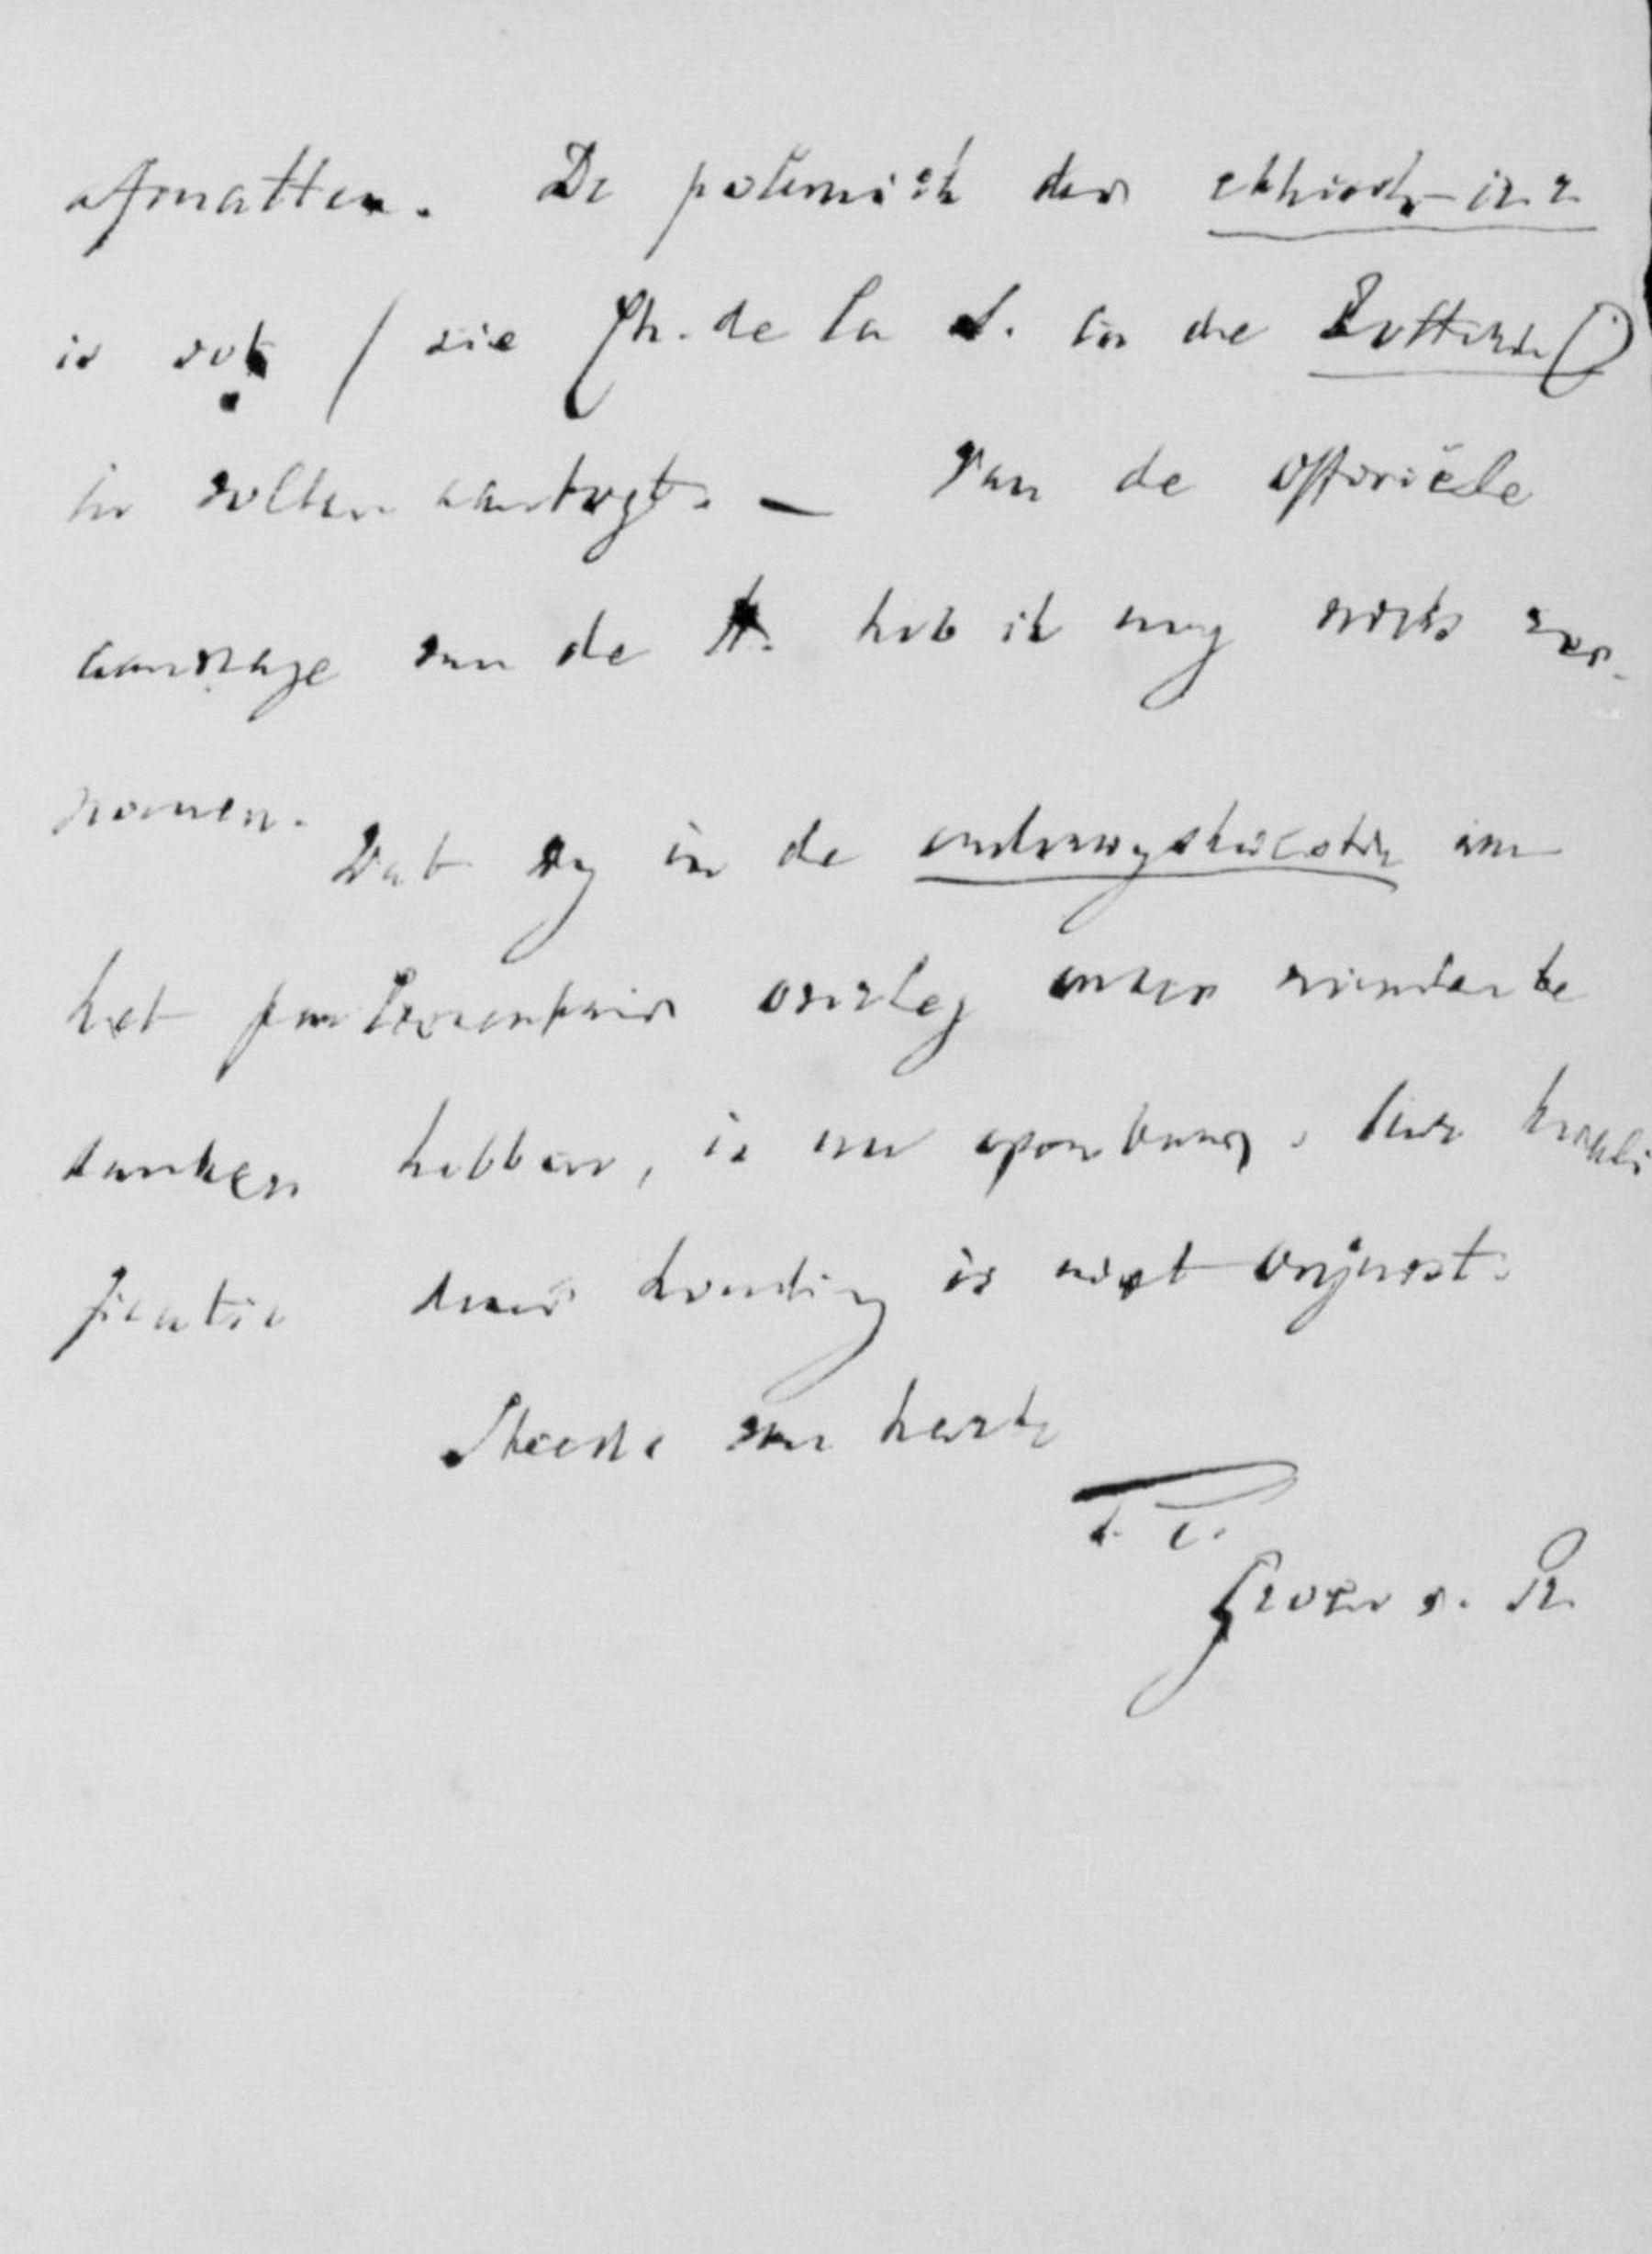 afmatten. De polemiek der ethisch-irr.
is ook (zie Ch. de la S. in de Rotterd.)
in vollen aantogt. — Van de officiële
aanvrage van de St. heb ik nog niets ver-
nomen.
Dat wij in de onderwijskwestie aan
het parlementair overleg onzer vrienden te
danken hebben, is nu openbaar. Uw kwali-
ficatie dier houding is niet onjuist.
Steeds van harte
t. t.
Groen v. Pr.